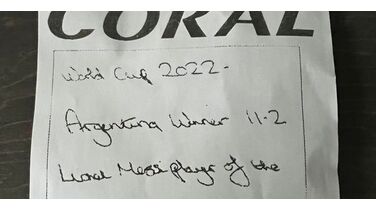 CORAL
World Cup 2022-
Argentina Winner 11-2
Lionel Messi player of the